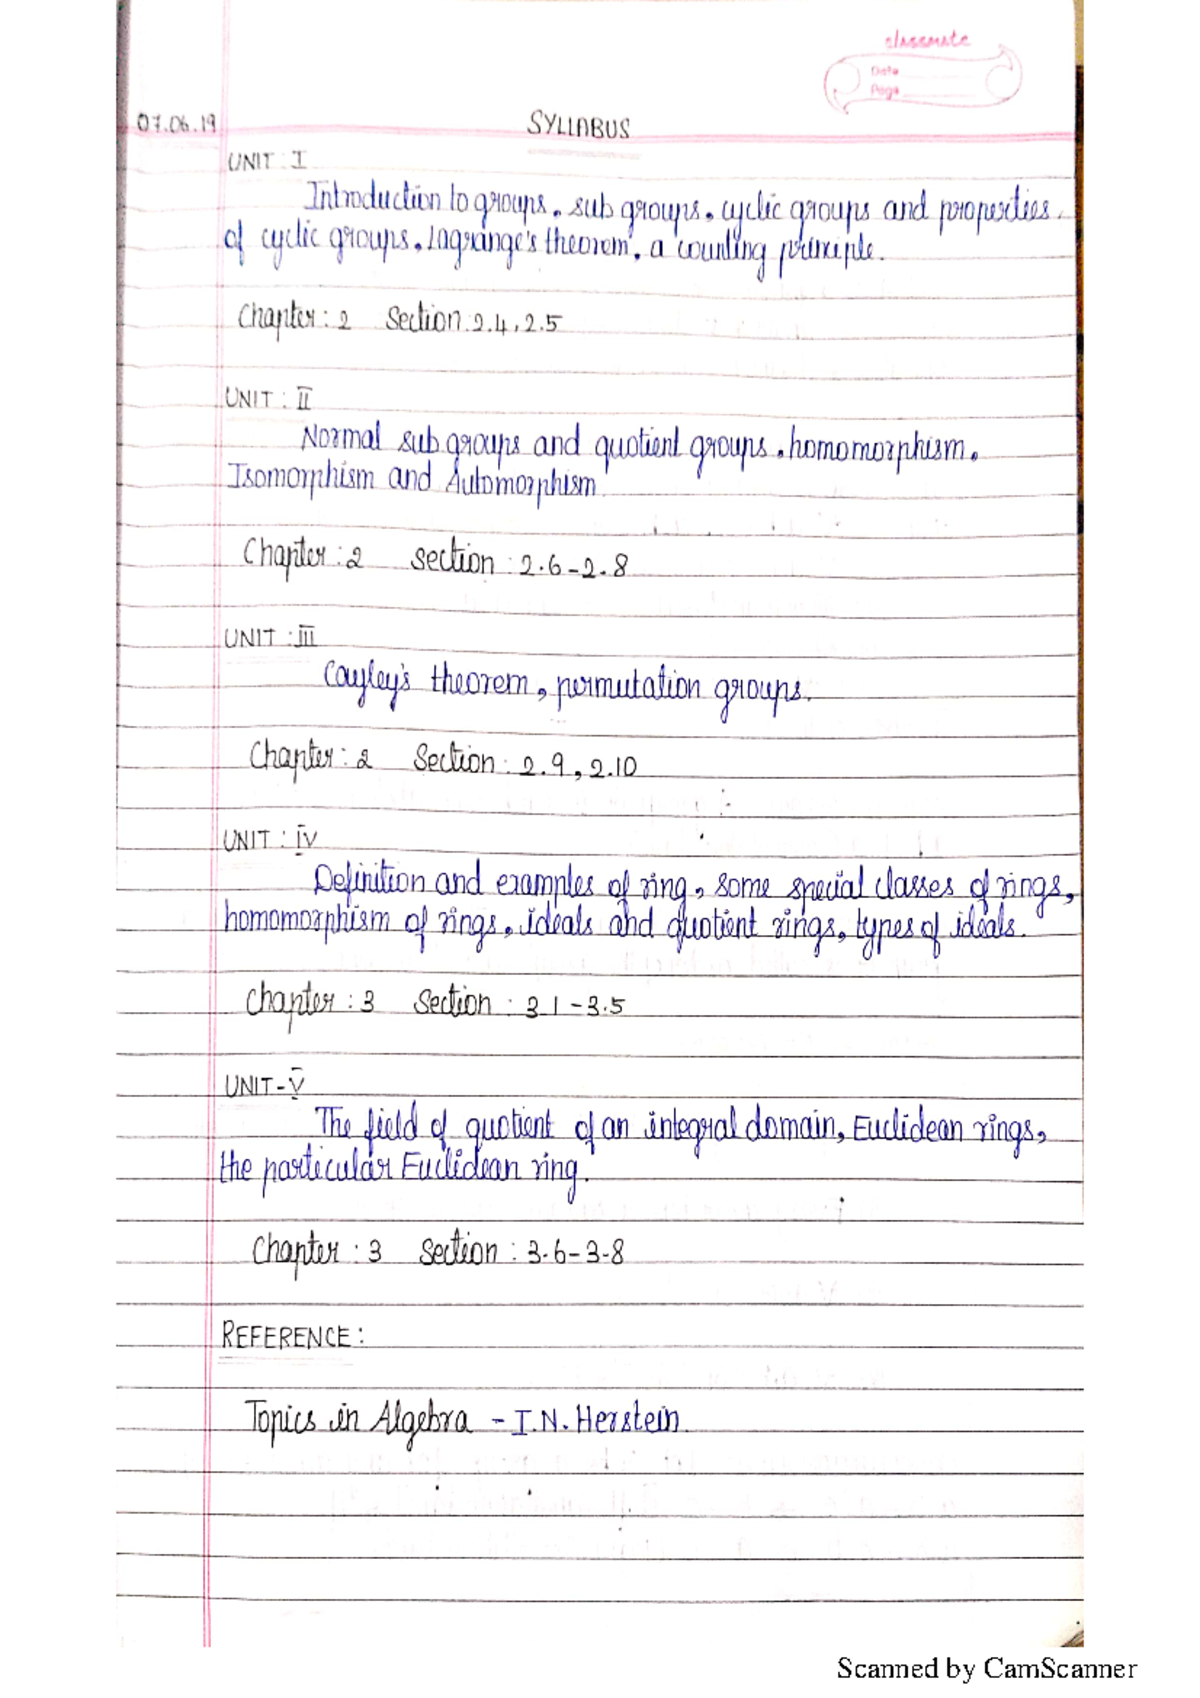 classmate
Date
Page
07.06.19
SYLLABUS
UNIT : I
Introduction to groups, sub groups, cyclic groups and properties
of cyclic groups, Lagrange's theorem, a counting principle.
Chapter : 2 Section : 2.4, 2.5
UNIT : II
Normal sub groups and quotient groups, homomorphism,
Isomorphism and Automorphism
Chapter : 2 Section : 2.6 - 2.8
UNIT : III
Cayley's theorem, permutation groups.
Chapter : 2 Section : 2.9, 2.10
UNIT : IV
Definition and examples of ring, some special classes of rings,
homomorphism of rings, ideals and quotient rings, types of ideals.
Chapter : 3 Section : 3.1 - 3.5
UNIT - V
The field of quotient of an integral domain, Euclidean rings,
the particular Euclidean ring.
Chapter : 3 Section : 3.6 - 3.8
REFERENCE :
Topics in Algebra - I.N. Herstein.
Scanned by CamScanner